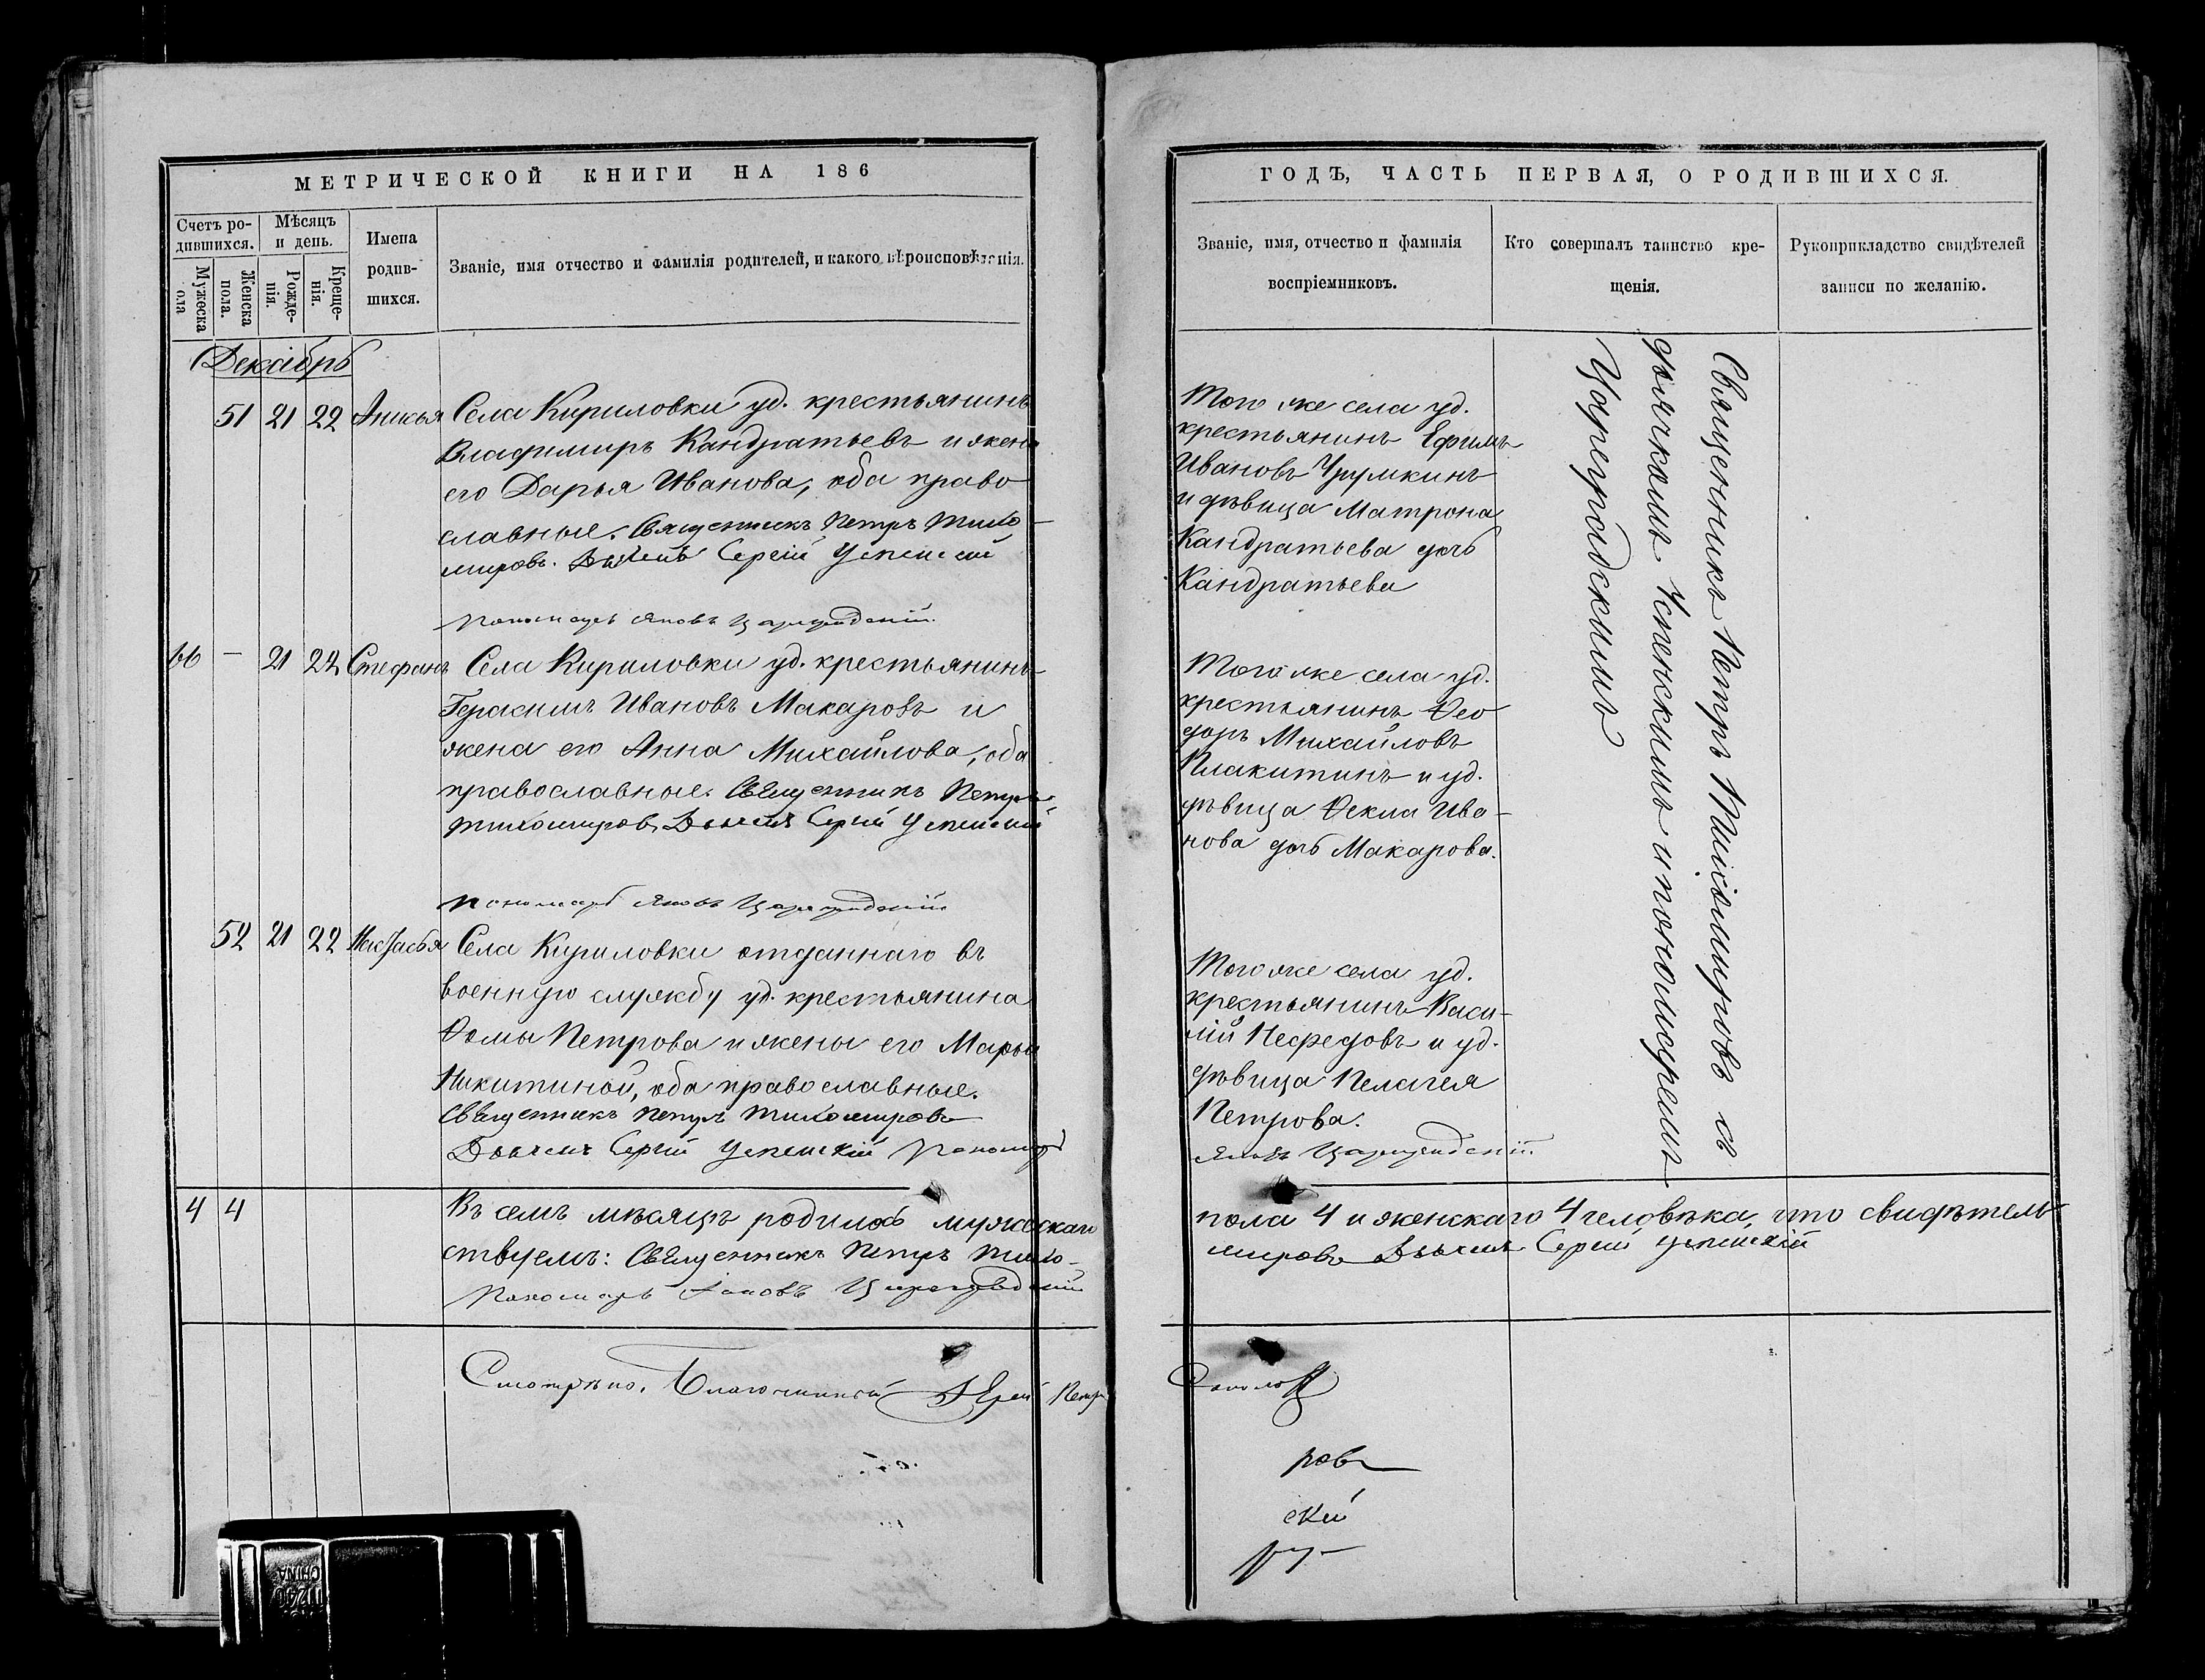 МЕТРИЧЕСКОЙ КНИГИ НА 186
Счетъ ро-
дившихся.
Мѣсяцъ
и день.
Мужеска
пола
Женска
пола.
Рожде-
нія.
Креще-
нія.
Имена
родив-
шихся.
Званіе, имя отчество и фамилія родителей, и какого вѣроисповѣданія.
Декабрь
51 21 22 Аникья Села Кириловки уд. крестьянинъ
Владимиръ Кандратьевъ и жена
его Дарья Иванова, оба право
славные. Священникъ Петръ Тихо-
мировъ. Дьячекъ Сергій Успенскій
пономарь Яковъ Цареградскій.
66 — 21 22 Стефанъ Села Кириловки уд. крестьянинъ
Герасимъ Ивановъ Макаровъ и
жена его Анна Михайлова, оба
православные. Священникъ Петръ
Тихомировъ Дьячекъ Сергій Успенскій
пономарь Яковъ Цареградскій
52 21 22 Настасья Села Кириловки отданнаго въ
военную службу уд. крестьянина
Ѳомы Петрова и жены его Марьи
Никитиной, оба православные.
Священникъ Петръ Тихомировъ
Дьячекъ Сергій Успенскій Пономарь
4 4 Въ семъ мѣсяцѣ родилось мужескаго
ствуемъ: Священникъ Петръ Тихо-
Пономарь Яковъ Цареградскій
Смотрѣно. Благочинный Іерей Петръ
ГОДЪ, ЧАСТЬ ПЕРВАЯ, О РОДИВШИХСЯ.
Званіе, имя, отчество и фамилія
воспріемниковъ.
Кто совершалъ таинство кре-
щенія.
Рукоприкладство свидѣтелей
записи по желанію.
Того же села уд.
крестьянинъ Ефимъ
Ивановъ
и дѣвица Матрона
Кандратьева дочь
Кандратьева
Того же села уд.
крестьянинъ Ѳео
доръ Михайловъ
Плакитинъ и уд.
дѣвица Ѳекла Ива-
нова дочь Макарова.
Того же села уд.
крестьянинъ Васи-
лій Нефедовъ и уд.
дѣвица Пелагея
Петрова.
Яковъ Цареградскій.
Священникъ Петръ Тихомировъ съ
дьячкомъ Успенскимъ и пономаремъ
Цареградскимъ
пола 4 и женскаго 4 человѣка, что свидѣтель
мировъ Дьячекъ Сергій Успенскій
ровъ
скій